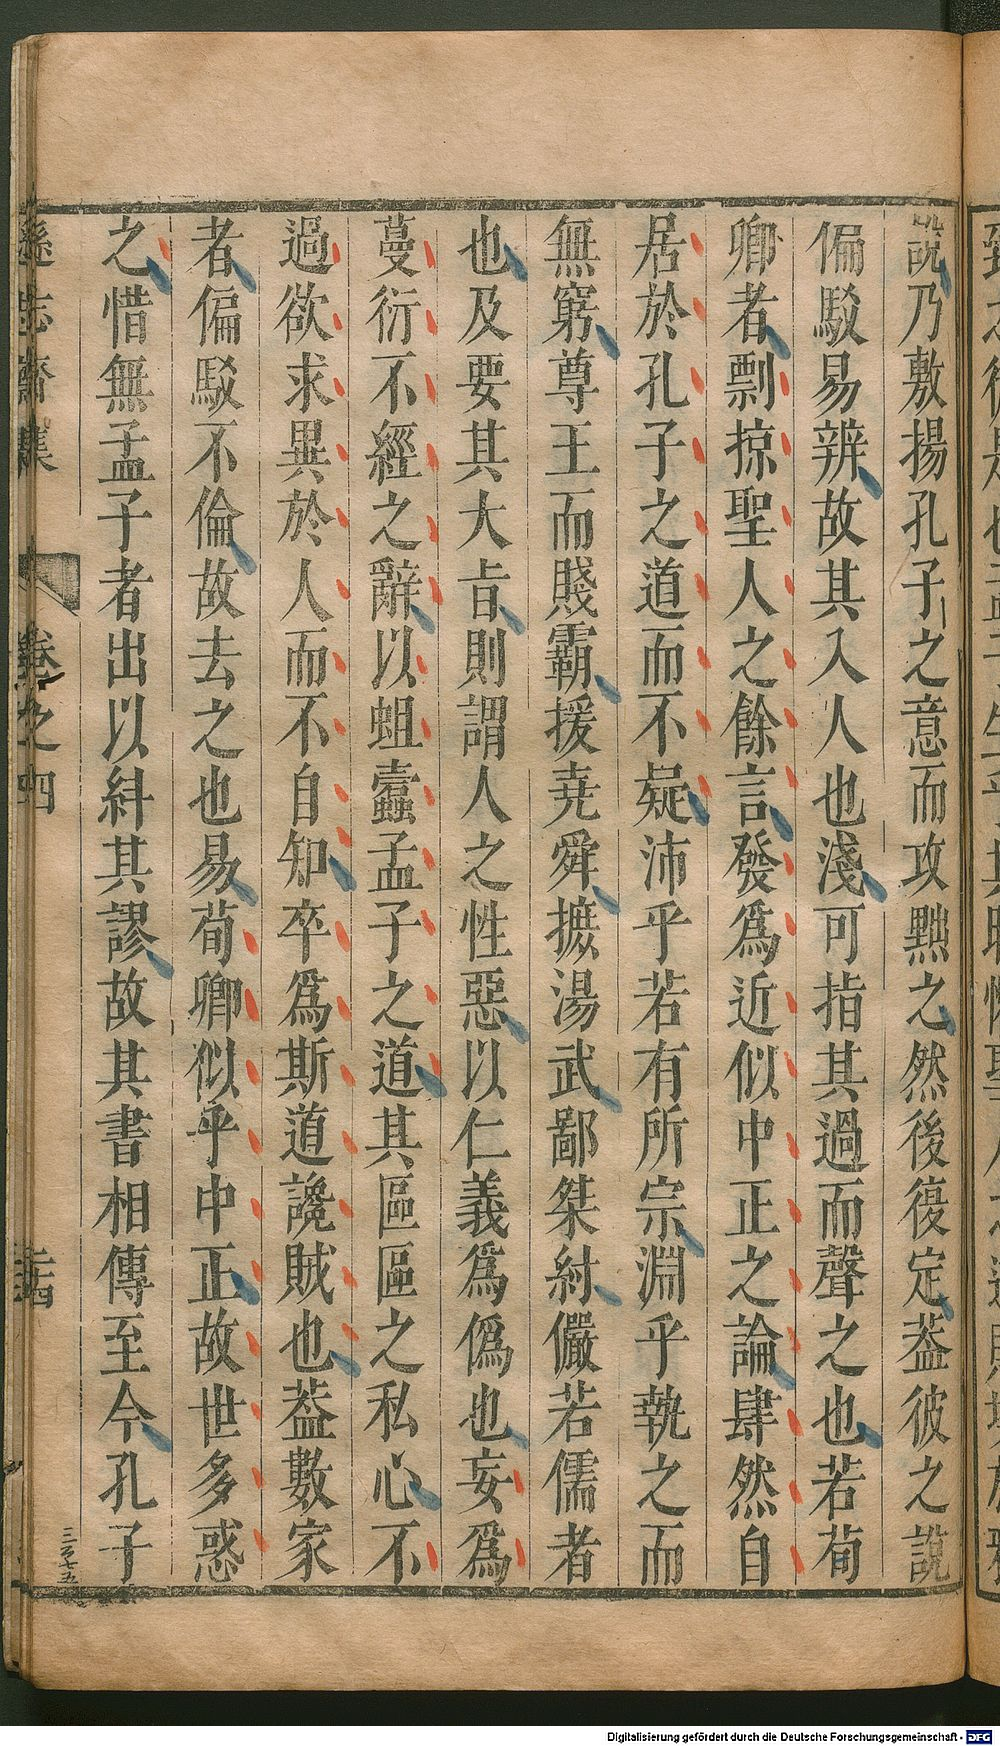 說乃敷揚孔子之意而攻黜之然後復定葢彼之說
偏駁易辨故其入人也淺可指其過而聲之也若荀
卿者剽掠聖人之餘言發爲近似中正之論肆然自
居於孔子之道而不疑沛乎若有所宗淵乎執之而
無窮尊王而賤霸援尭舜摭湯武鄙桀紂儼若儒者
也及要其大旨則謂人之性惡以仁義爲僞也妄爲
蔓衍不經之辭以蛆蠧孟子之道其區區之私心不
過欲求異於人而不自知卒爲斯道讒賊也葢數家
者偏駁不倫故去之也易荀卿似乎中正故世多惑
之惜無孟子者出以糾其謬故其書相傳至今孔子
遜志齋集 卷之四
三百七十五
Digitalisierung gefördert durch die Deutsche Forschungsgemeinschaft - DFG